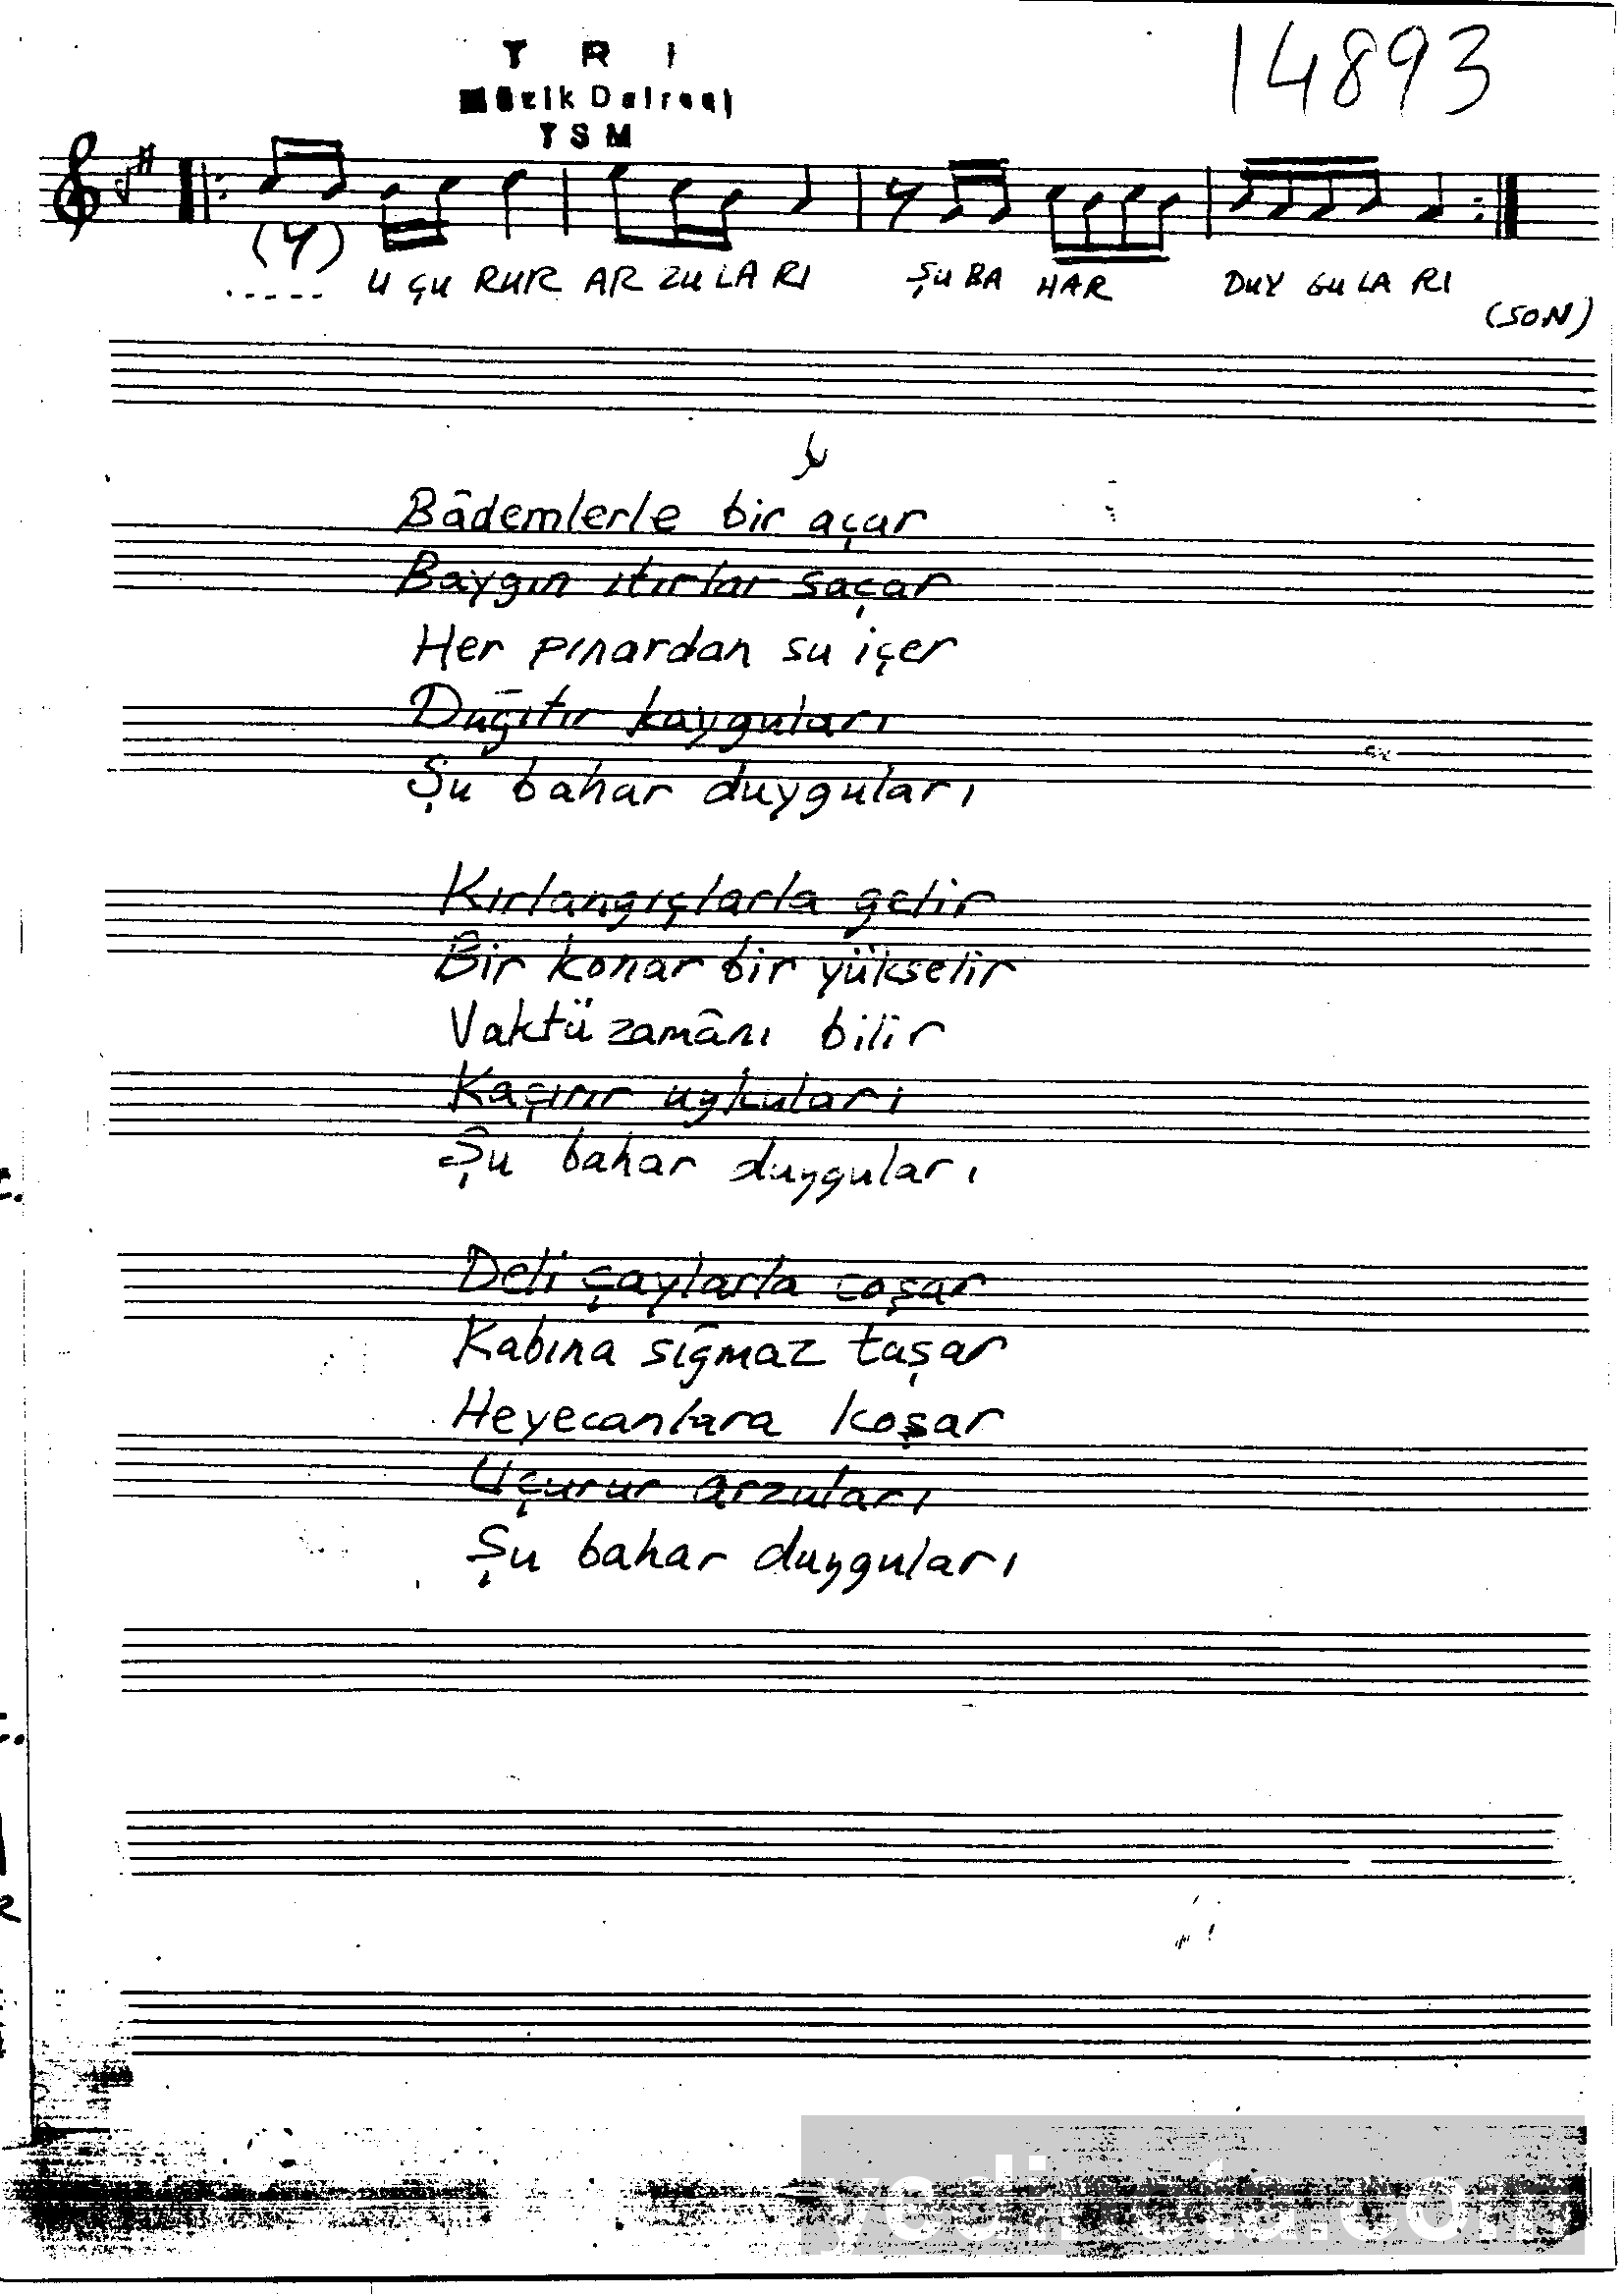 14893
T R T
Müzik Dairesi
TSM
U ÇU RUR AR ZU LA RI ŞU BA HAR DUY GU LA RI
(SON)
Bâdemlerle bir açar
Baygın ıtırlar saçar
Her pınardan su içer
Dağıtır kayguları
Şu bahar duyguları
Kırlangıçlarla gelir
Bir konar bir yükselir
Vaktü zamânı bilir
Kaçırır uykuları
Şu bahar duyguları
Deli çaylarla coşar
Kabına sığmaz taşar
Heyecanlara koşar
Uçurur arzuları
Şu bahar duyguları
yedinota.com